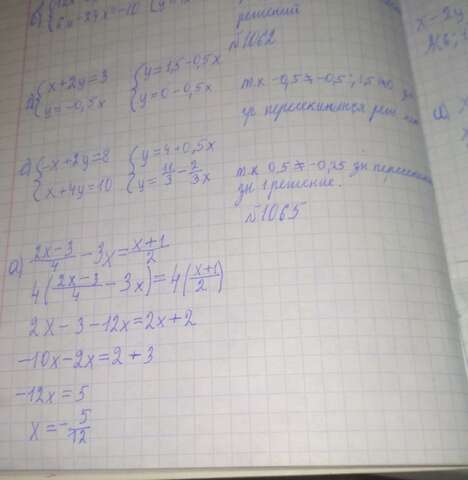 б) {6x-24x=-10 {y=
решений
№1062
{x+2y=3 {y=1,5-0,5x
{y=-0,5x {y=0-0,5x
т.к -0,5=-0,5; 1,5≠0, зн
гр пересекаются реш
{-x+2y=8 {y=4+0,5x
{x+4y=10 {y=
т.к 0,5≠-0,25 зн пересек
зн 1 решение.
№1065
а) (2x-3)/4 - 3x = (x+1)/2
4((2x-3)/4 - 3x) = 4((x+1)/2)
2x-3-12x=2x+2
-10x-2x=2+3
-12x=5
x=-5/12
x-2y